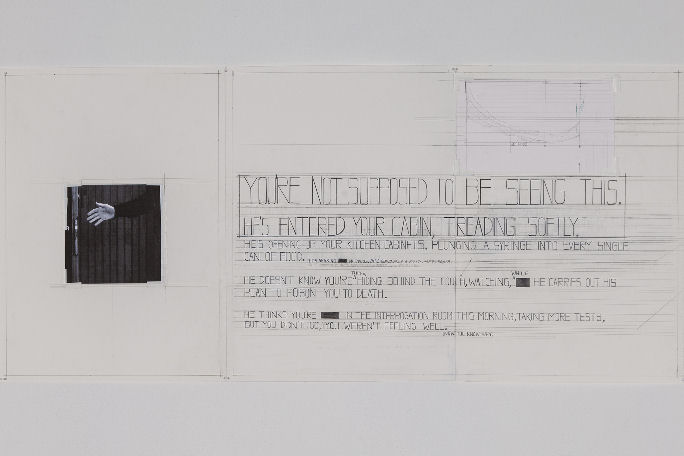 YOU'RE NOT SUPPOSED TO BE SEEING THIS.
HE'S ENTERED YOUR CABIN, TREADING SOFTLY.
HE'S OPENING UP YOUR KITCHEN CABINETS, PLUNGING A SYRINGE INTO EVERY SINGLE
CAN OF FOOD.
THERE, WHILE
HE DOESN'T KNOW YOU'RE HIDING BEHIND THE COUCH, WATCHING, HE CARRIES OUT HIS
PLAN TO POISON YOU TO DEATH.
HE THINKS YOU'RE IN THE INTERROGATION ROOM THIS MORNING, TAKING MORE TESTS,
BUT YOU DIDN'T GO, YOU WEREN'T FEELING WELL.